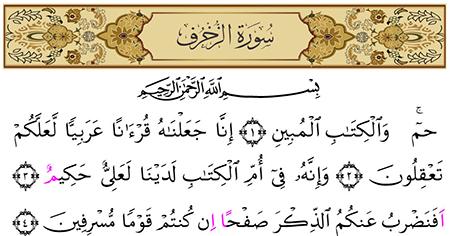 سُورَةُ الزُّخْرُفِ
بِسْمِ ٱللَّهِ ٱلرَّحْمَٰنِ ٱلرَّحِيمِ
حمٓ وَالْكِتَابِ الْمُبِينِ ﴿١﴾ إِنَّا جَعَلْنَاهُ قُرْءَانًا عَرَبِيًّا لَّعَلَّكُمْ
تَعْقِلُونَ ﴿٢﴾ وَإِنَّهُ فِىٓ أُمِّ الْكِتَابِ لَدَيْنَا لَعَلِىٌّ حَكِيمٌ ﴿٣﴾
اَفَنَضْرِبُ عَنكُمُ الذِّكْرَ صَفْحًا اِن كُنتُمْ قَوْمًا مُّسْرِفِينَ ﴿٤﴾